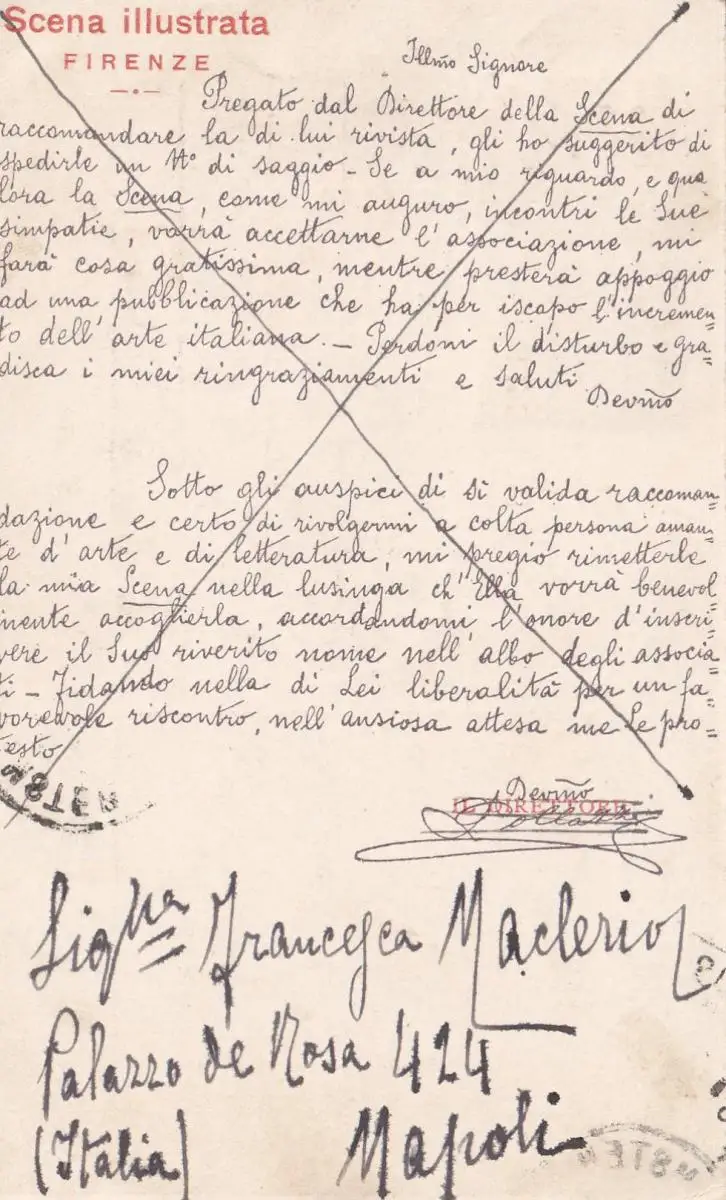 Scena illustrata
FIRENZE
Illmo Signore
Pregato dal Direttore della Scena di
raccomandare la di lui rivista, gli ho suggerito di
spedirle un N.º di saggio - Se a mio riguardo, e qua
lora la Scena, come mi auguro, incontri le Sue
simpatie, vorrà accettarne l'associazione, mi
farà cosa gratissima, mentre presterà appoggio
ad una pubblicazione che ha per iscopo l'incremen=
to dell'arte italiana. - Perdoni il disturbo e gra=
disca i miei ringraziamenti e saluti
Devmo
Sotto gli auspici di sì valida raccoman=
dazione e certo di rivolgermi a colta persona aman=
te d'arte e di letteratura, mi pregio rimetterle
la mia Scena nella lusinga ch'Ella vorrà benevol
mente accoglierla, accordandomi l'onore d'inscri=
vere il Suo riverito nome nell'albo degli associa=
ti - Fidando nella di Lei liberalità per un fa=
vorevole riscontro, nell'ansiosa attesa me Le pro=
testo
Devmo
IL DIRETTORE
Pollazzi
Sigña Francesca Maclerio
Palazzo de Rosa 424
(Italia) Napoli